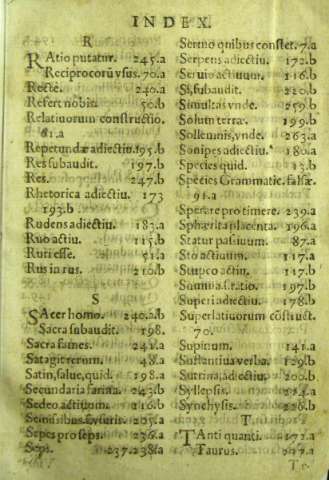 INDEX.
R
RAtio putatur. 245.a
Reciprocorū vsus. 70.a
Rectè. 240.a
Refert nobis. 50.b
Relatiuorum constructio.
61.a
Repetundæ adiectiu. 195.b
Res subaudit. 197.b
Res. 247.b
Rhetorica adiectiu. 173
193.b
Rudens adiectiu. 183.a
Ruo actiu. 115.b
Ruri esse. 51.a
Rus in rus. 210.b
S
SAcer homo. 240.a.b
Sacra subaudit. 198.
Sacra fames. 241.a
Satagit rerum. 48.a
Satin, salue, quid. 198.a
Secundaria farina. 243.b
Sedeo actiuum. 116.b
Semissibus vsuris. 205.a
Sepes pro seps. 236.a
Seps. 237.238.a
Sermo quibus constet. 7.a
Serpens adiectiu. 172.b
Seruio actiuum. 116.b
Si, subaudit. 220.b
Simultas vnde. 259.b
Solum terræ. 199.b
Sollennis, vnde. 263.a
Sonipes adiectiu. 180.a
Species quid. 13.b
Species Grammatic. falsæ.
91.a
Sperare pro timere. 239.a
Sphærita placenta. 196.a
Statur passiuum. 87.a
Sto actiuum. 117.a
Stupeo actiu. 117.b
Summa, s. ratio. 197.b
Superi adiectiu. 178.b
Superlatiuorum cōstruct.
70.
Supinum. 141.a
Sustantiua verba. 129.b
Sutrina, adiectiu. 200.b
Syllepsis.
Synchysis. 226.b
T
TAnti quanti. 172.a
Taurus.